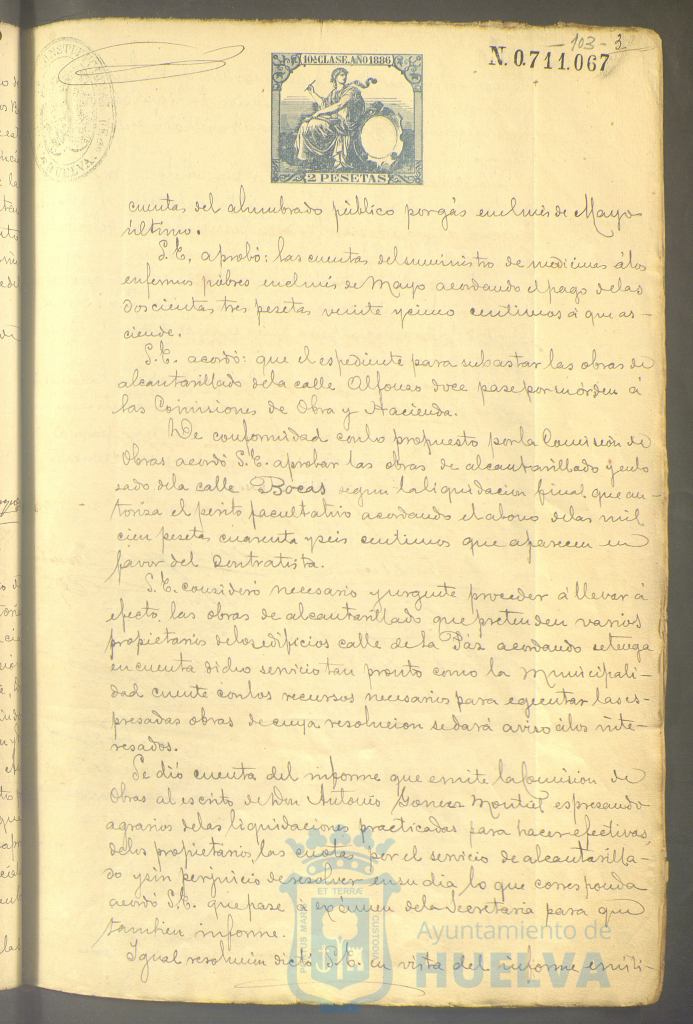 103-3
10ª CLASE. AÑO 1886
N. 0.711.067
2 PESETAS
HUELVA
cuentas del alumbrado público por gás en el mes de Mayo
último.
S.E. aprobó: las cuentas del suministro de medicinas á los
enfermos pobres en el mes de Mayo acordando el pago de las
doscientas tres pesetas veinte y cinco centimos á que as-
ciende.
S.E. acordó: que el espediente para subastar las obras de
alcantarillado de la calle Alfonso doce pase por su órden á
las Comisiones de Obra y Hacienda.
De conformidad con lo propuesto por la Comision de
Obras acordó S.E. aprobar las obras de alcantarillado y enlo
sado de la calle Bocas segun la liquidacion final que au-
toriza el perito facultativo acordando el abono de las mil
cien pesetas cuarenta y seis centimos que aparecen en
favor del contratista.
S.E. consideró necesario y urgente proceder á llevar á
efecto las obras de alcantarillado que pretenden varios
propietarios de los edificios calle de la Paz acordando se tenga
en cuenta dicho servicio tan pronto como la Municipali-
dad cuente con los recursos necesarios para egecutar las es-
presadas obras de cuya resolucion se dará aviso á los inte-
resados.
Se dió cuenta del informe que emite la Comision de
Obras al escrito de Don Antonio Gomez Montiel espresando
agravios de las liquidaciones practicadas para hacer efectivas
de los propietarios las cuotas por el servicio de alcantarilla-
do y sin perjuicio de resolver en su dia lo que corresponda
acordó S.E. que pase á exámen de la Secretaria para que
tambien informe.
Igual resolucion dictó S.E. en vista del informe emiti-
ET TERRÆ
PORTUS MARIS
CUSTODIA
Ayuntamiento de
HUELVA